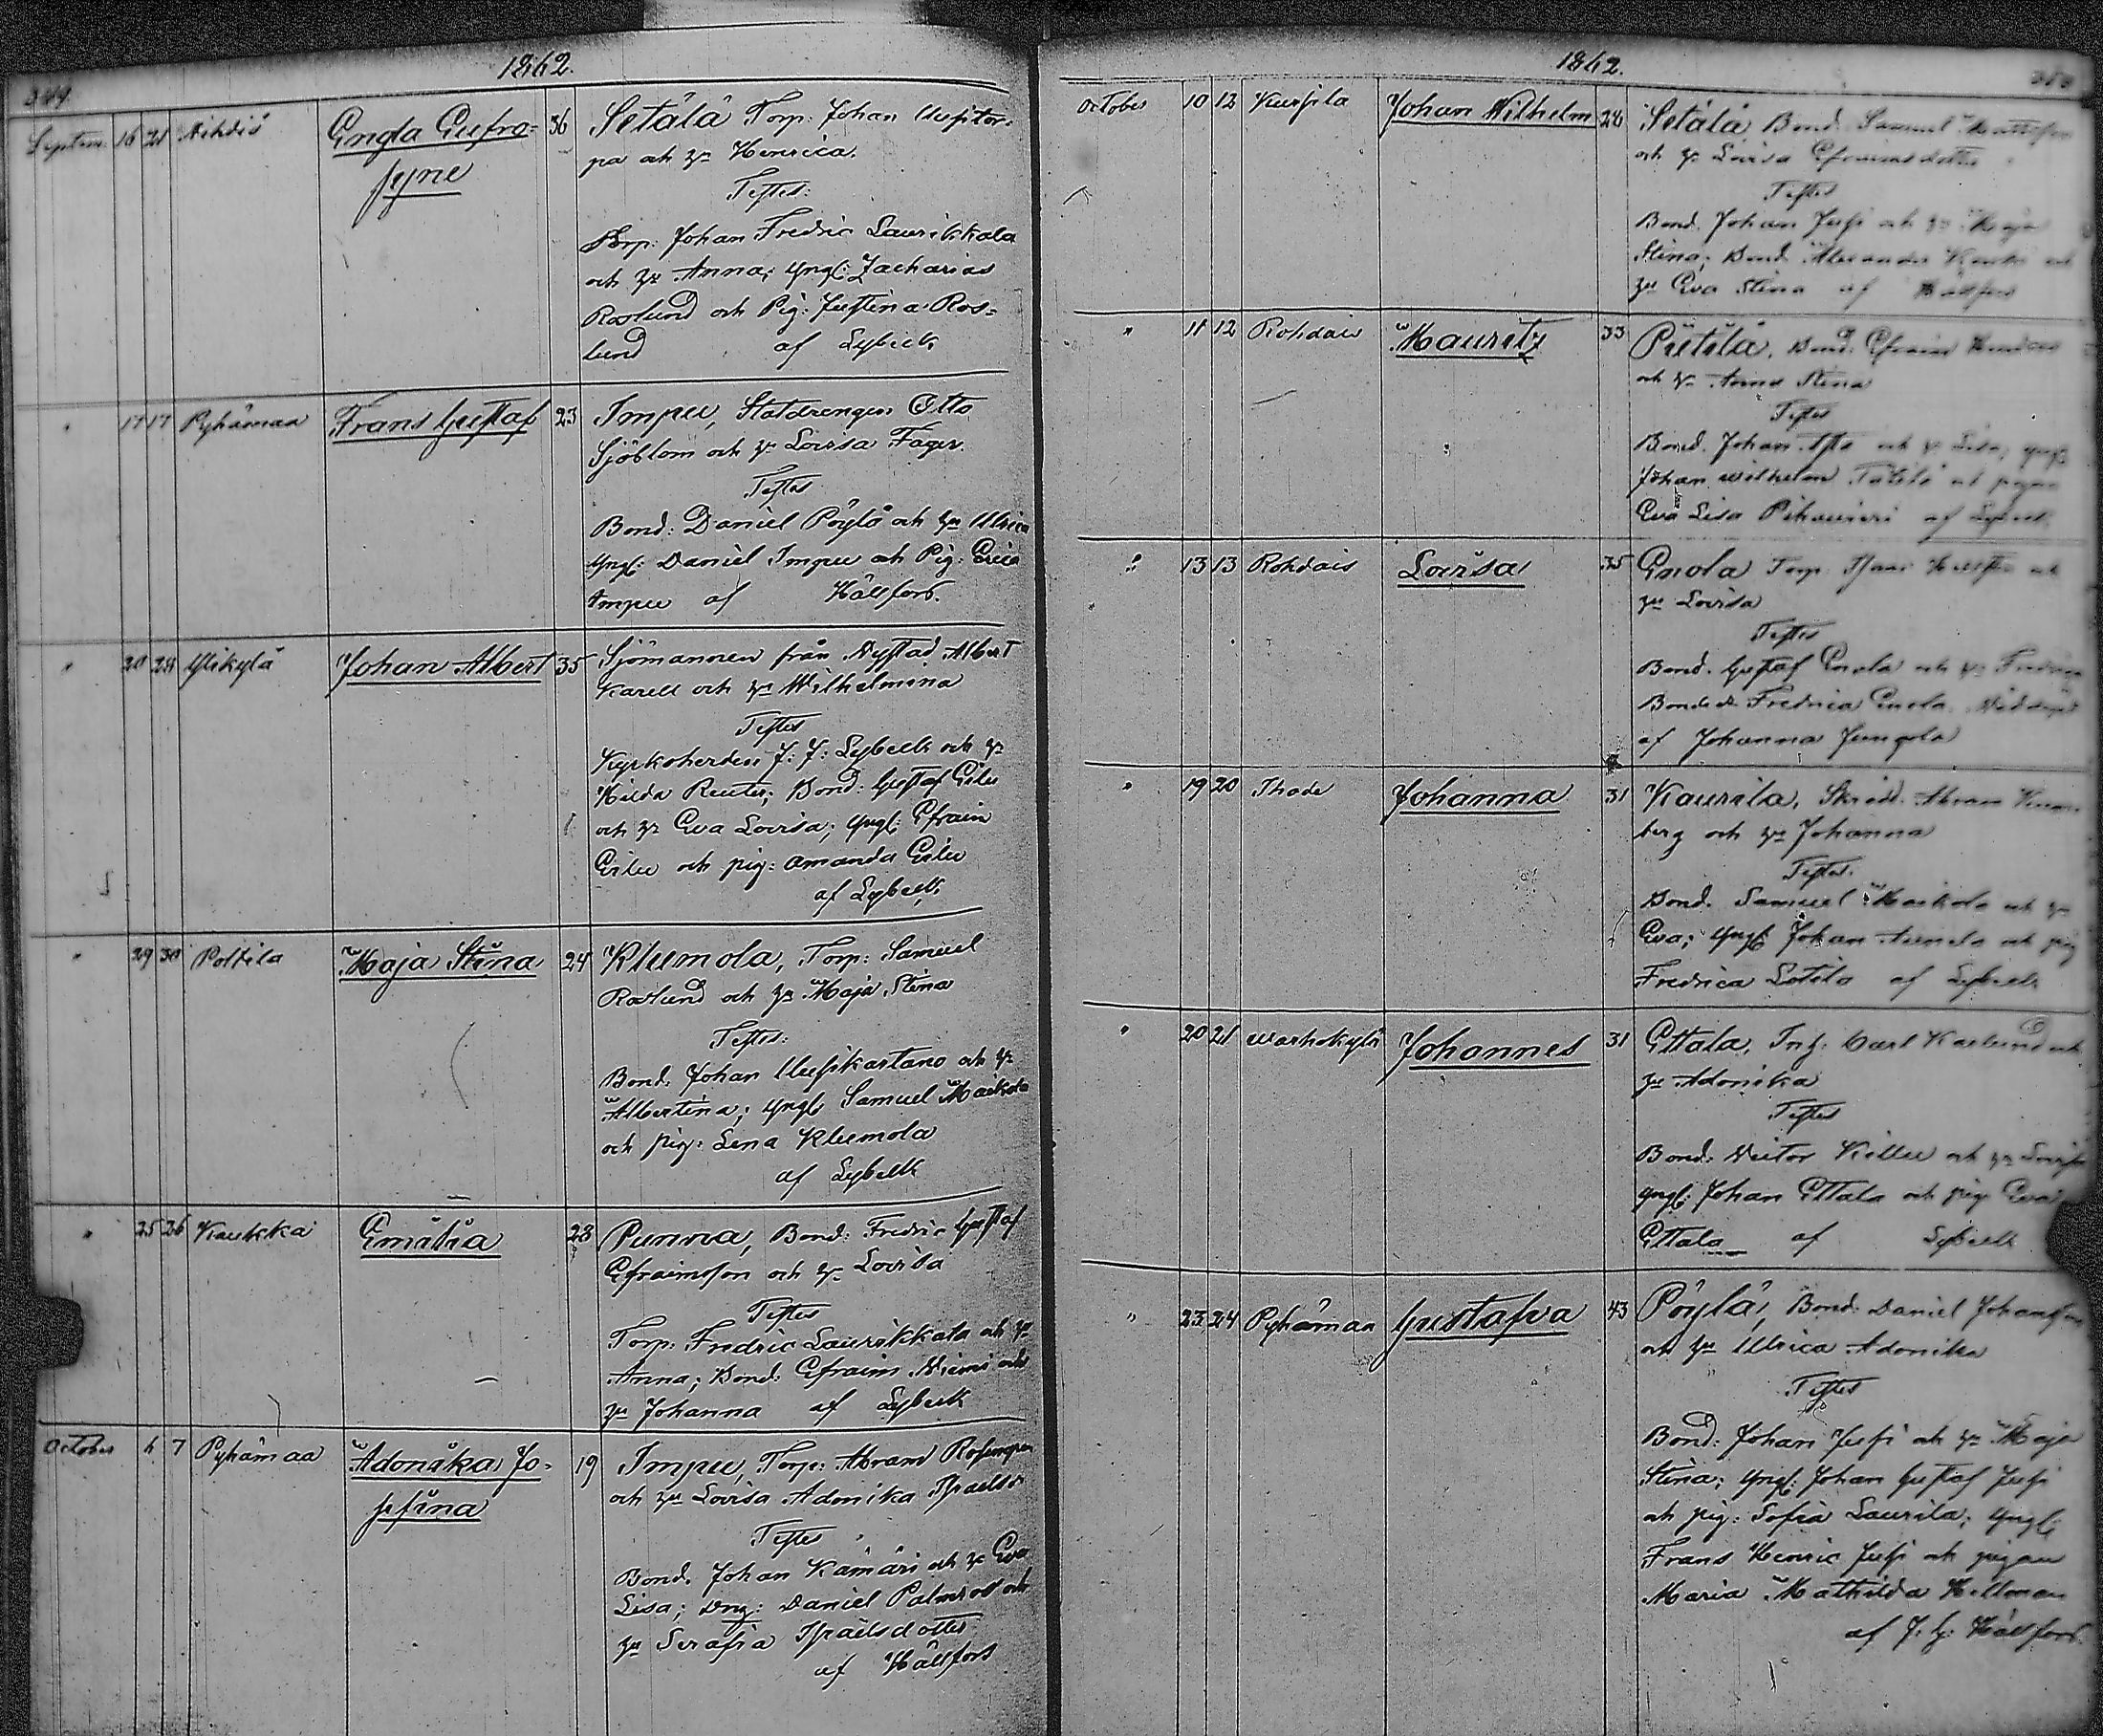 1862.
Septem. 16 21 Aihdis Engla Eufro= 36 Setälä Torp: Johan Uusitor:
syne pa och h:u Henrica.
Testes:
Torp: Johan Fredric Laurikkala
och h:u Anna; yngl: Zacharias
Roslund och Pig: Justina Ros=
lund af Lybeck
" 17 17 Pyhämaa Frans Gustaf 23 Impu, Statdrengen Otto
Sjöblom och h:u Lovisa Fager.
Testes
Bond: Daniel Pöylä och h:u Ulrica
yngl: Daniel Impu och Pig: Erica
Impu af Hällfors.
" 20 28 Ylikylä Johan Albert 35 Sjömannen från Nystad Albert
Karell och h:u Wilhelmina
Testes
Kyrkoherden J: J: Lybeck och h:u
Hilda Reuter; Bond: Gustaf Eilu
och h:u Eva Lovisa; yngl: Efraim
Eilu och pig: Amanda Eilu
af Lybeck
" 29 30 Poltila Maja Stina 24 Klemola, Torp: Samuel
Roslund och h:u Maja Stina
Testes:
Bond. Johan Uusikartano och h:u
Albertina; yngl: Samuel Maikola
och pig: Lena Klemola
af Lybeck
" 25 26 Kaukka Emilia 23 Punna, Bond: Fredric Gustaf
Efraimsson och h:u Lovisa
Testes
Torp: Fredric Laurikkala och h:u
Anna; Bond: Efraim Niemi och
h:u Johanna af Lybeck
October 6 7 Pyhämaa Adonika Jo- 19 Impu, Torp: Abram Rosengren
sefina och h:u Lovisa Adonika Israelsd:r
Testes
Bond. Johan Kämäri och h:u Eva
Lisa; Dng: Daniel Palmros och
h:u Serafia Israelsdotter
af Hällfors
1862.
October 10 12 Kursila Johan Wilhelm 28 Setälä Bond: Samuel Mattsson
och h:u Lovisa Efraimsdotter
Testes
Bond. Johan Jussi och h:u Maja
Stina; Bond. Alexander och
h:u Eva Stina af Hällfors
" 11 12 Rohdais Mauritz 33 Pietilä, Bond: Efraim
och h:u Anna Stina
Testes
Bond. Johan och h:u Lisa; yngl:
Johan Wilhelm och pigan
Eva Lisa Pihauieri af Lybeck
" 13 13 Rohdais Lovisa 35 Enola Torp. och
h:u Lovisa
Testes
Bond. Gustaf Enola och h:u Fredrica
Fredrica Enola. Nöddöpt
af Johanna Jungola
" 19 20 Ihode Johanna 31 Kaurila, Skrädd. Abram
berg och h:u Johanna
Testes.
Bond. Samuel Maikola och h:u
Eva; yngl: Johan Aunela och pig
Fredrica Sotila af Lybeck
" 20 21 Warhokylä Johannes 31 Ettala, Inh: Carl Karlund och
h:u Adonika
Testes
Bond. Victor Killu och h:u Lovisa
yngl: Johan Ettala och pig: Eva
Ettala af Lybeck
" 23 24 Pyhämaa Gustafva 43 Pöylä, Bond: Daniel Johansson
och h:u Ulrica Adonika
Testes
Bond: Johan Jussi och h:u Maja
Stina; yngl: Johan Gustaf Jussi
och pig: Sofia Laurila; yngl:
Frans Henric Jussi och pigan
Maria Mathilda Hellman
af J. G. Hällfors.